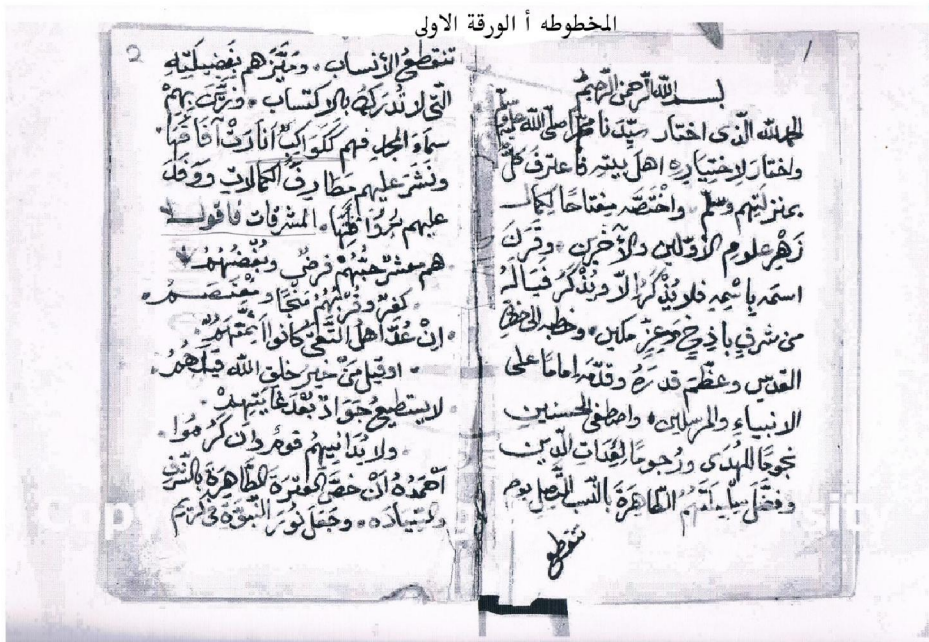 المخطوطه أ الورقة الاولى
1
بسم الله الرحمن الرحيم
الحمد لله الذى اختار سيّدنا محمّدًا صلى الله عليه وسلم
واختار لاختياره اهل بيته فاعترف كلّ
بمنزلتهم وسلّم واختصّه مفتاحًا لكمال
زهر علوم الأوّلين والآخرين وقرن
اسمه باسمه فلا يُذْكَرُ الّا ويُذْكَرُ فيا لهُ
من شرفٍ باذخٍ وعِزٍّ مكين وخطبه الى حضرة
القدس وعظّم قدرهُ وقدّمه اماما على
الانبياء والمرسلين واصطفى الحسنين
نجومًا للهُدى ورُجومًا لعداتِ الدّين
وفضّل سليلتهُم الطاهرة بالنّسب المتصل يوم
تنقطع
2
تنقطع الأنساب وميّزهم بفضيلته
التى لا تُدرك بالاكتساب وزيّن بهمْ
سماءَ المجدِ فهم ككواكبَ انارتْ آفاقَها
ونشر عليهم مطارفَ الكمالات
عليهم المشرفات فاقول
هم معشرٌ حبّهُمْ فرضٌ وبُغضُهُمُ
كفرٌ وقربُهُمُ منجًا ومُعْتصمُ
انْ عُدّ اهلُ التّقى كانوا ائمّتَهُمُ
او قيل مَنْ خير خلق الله قيل هُمُ
لا يستطيعُ جوادٌ بُعْدَ غايتِهِمْ
ولا يُدانيهمُ قومٌ وان كَرُمُوا
أحْمدُهُ انْ خصّ العترةَ الطّاهرةَ بالشّرف
والسّيادَه وجعل نورَ النّبوّة فى